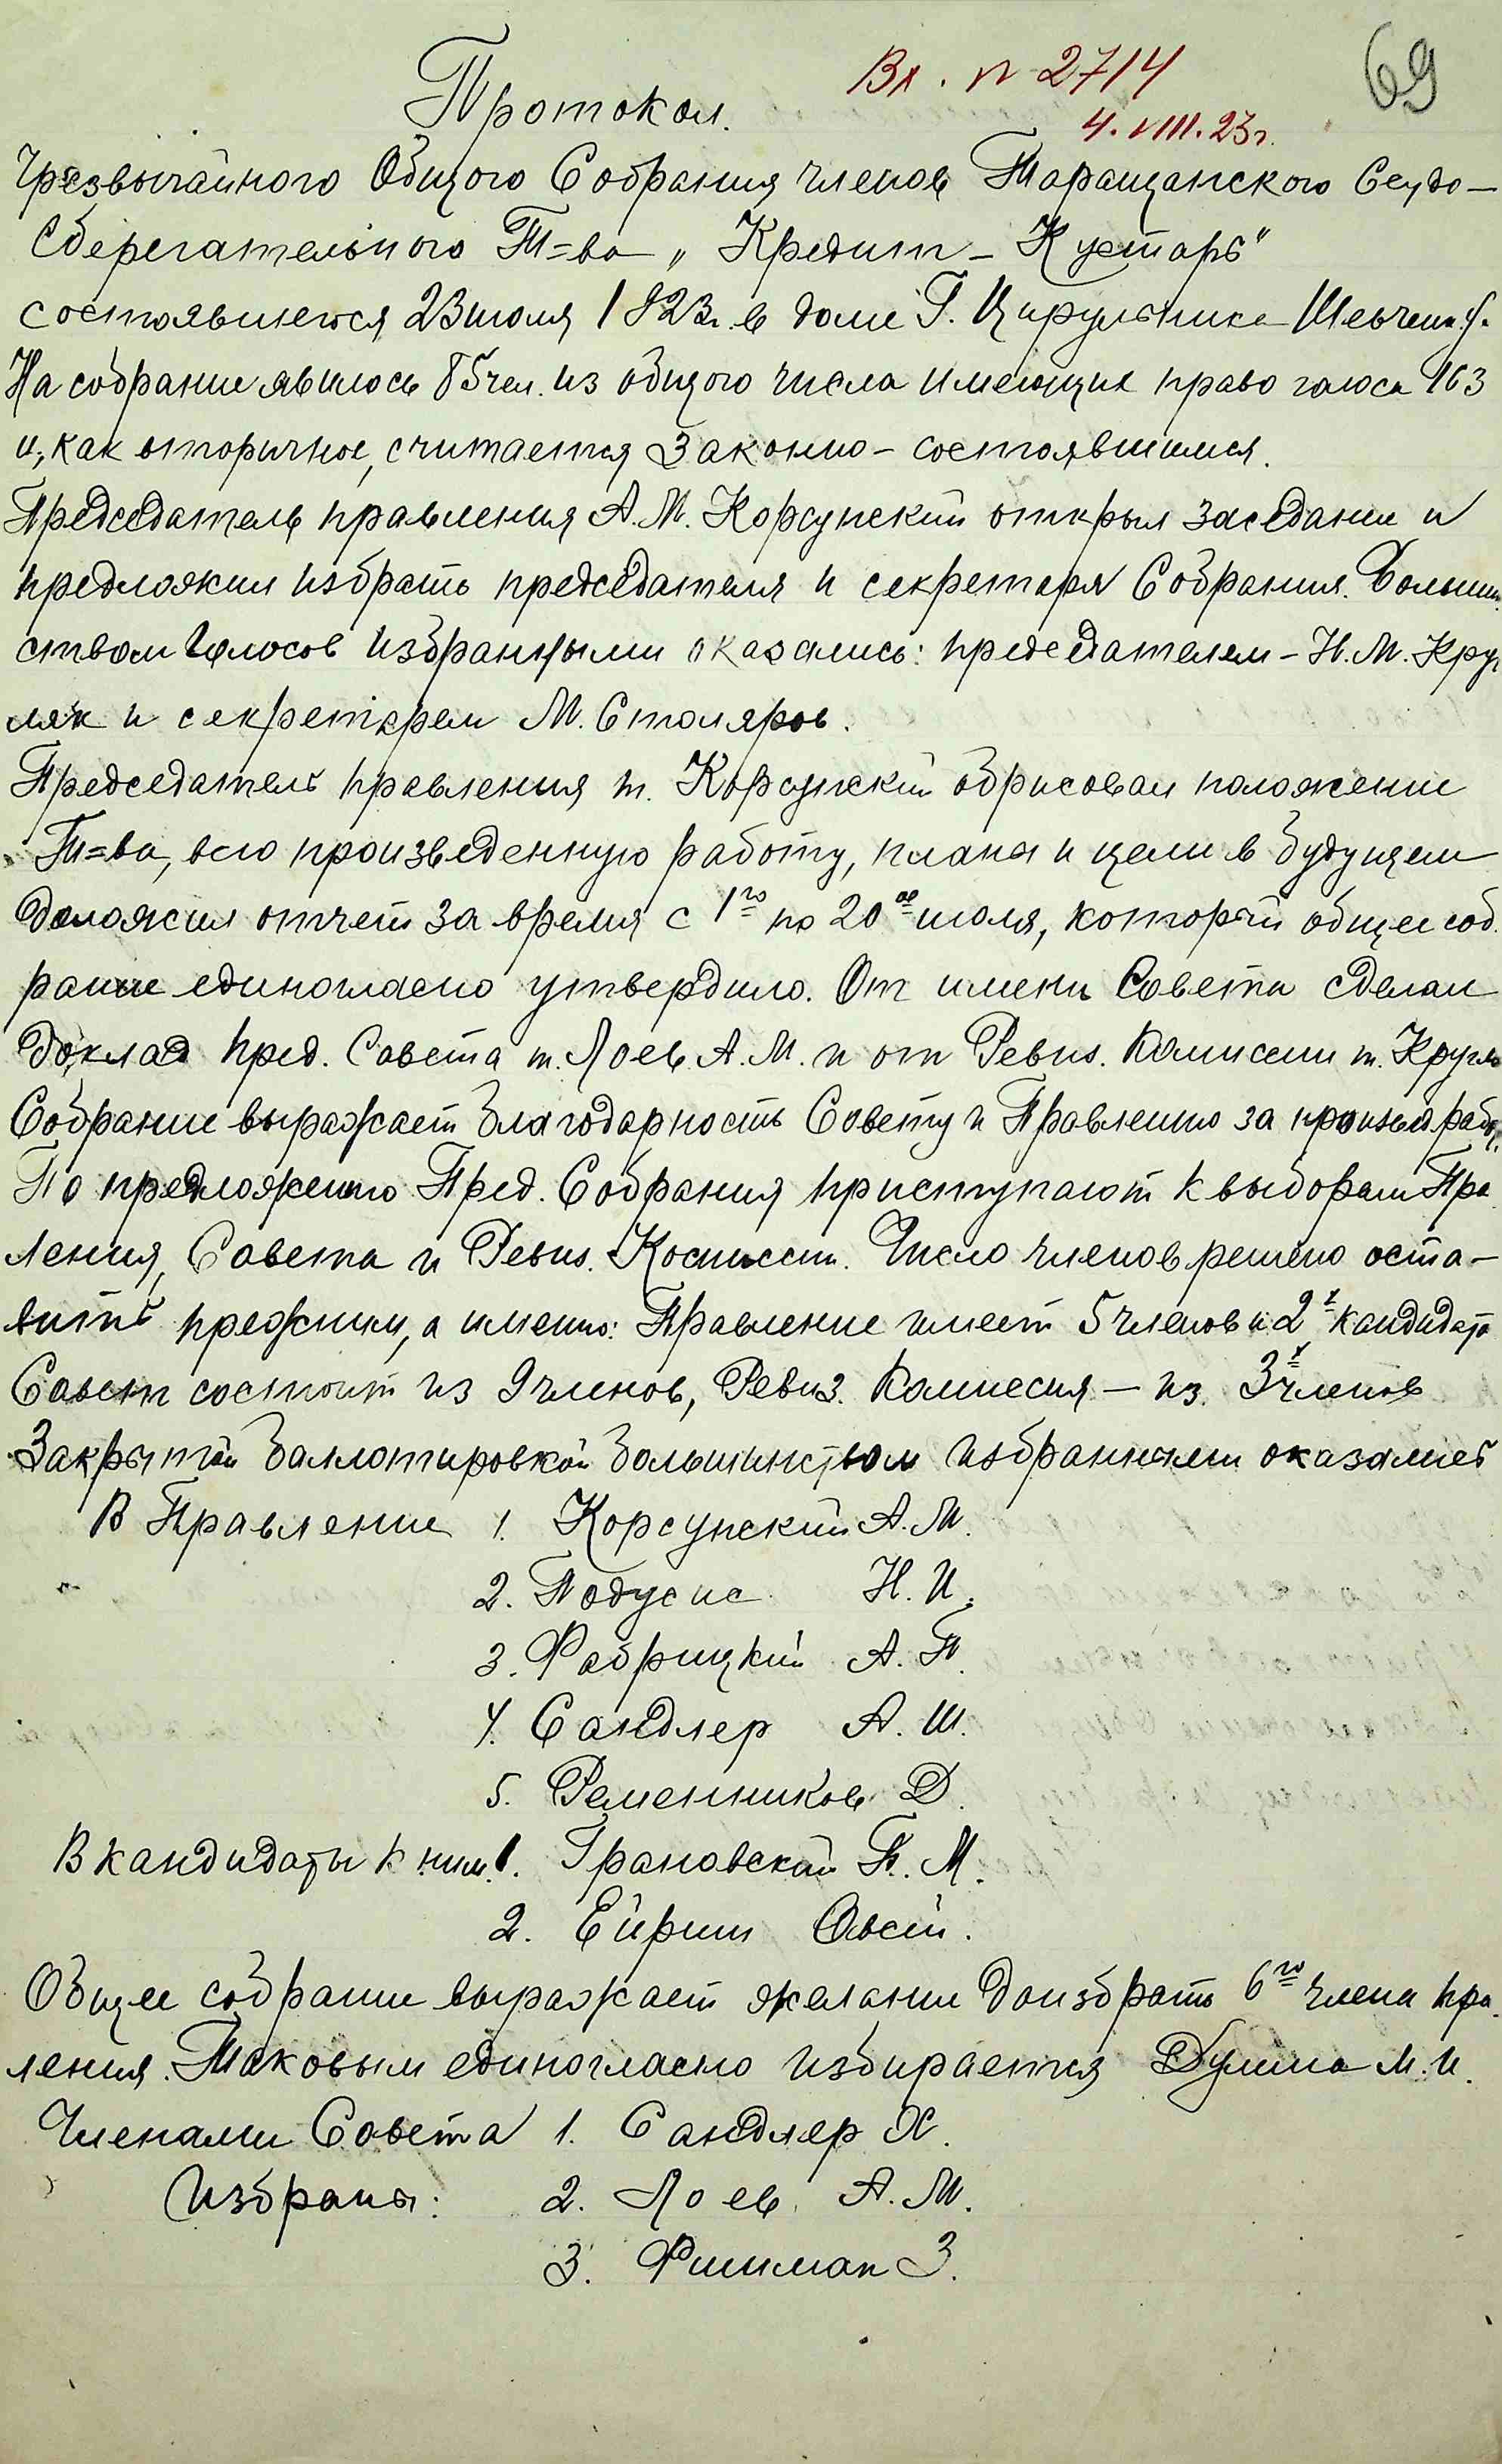 69
Вх. № 2714
4.VIII.23г.
Протокол.
Чрезвычайного Общого Собрания членов Таращанского Ссудо-
Сберегательного Т=ва „Кредит-Кустарь"
состоявшегося 23 июля 1923г. в доме Г. Цирульника
На собрание явилось 85 чел. из общого числа имеющих право голоса 163
и, как вторичное, считается законно-состоявшимся.
Председатель правления А.М. Корсунский открыл заседание и
предложил избрать председателя и секретаря Собрания. Большин
ством голосов избранными оказались: председателем - Н.М. Круг
ляк и секретарем М. Столяров.
Председатель правления т. Корсунский обрисовал положение
Т=ва, всю произведенную работу, планы и цели в будущем
доложил отчет за время с 1го по 20ое июля, который общее соб.
рание единогласно утвердило. От имени Совета сделал
доклад пред. Совета т. Лоев А.М. и от Ревиз. Комиссии т. Кругля
Собрание выражает благодарность Совету и Правлению за произвед. работ.
По предложению Пред. Собрания приступают к выборам Пра.
ления, Совета и Ревиз. Комиссии. Число членов решено оста-
вить прежним, а именно: Правление имеет 5 членов и 2х кандидата
Совет состоит из 9 членов, Ревиз. Комиссия - из 3х членов
Закрытой баллотировкой большинством избранными оказались
В Правление 1. Корсунский А.М.
2. Подусис Н.И.
3. Фабрицкий А.П.
4. Сандлер А.Ш.
5. Ременников Д.
В кандидаты к ним 1. Грановский П.М.
2. Ейриш Овсей.
Общее собрание выражает желание доизбрать 6го члена пра.
ления. Таковым единогласно избирается М.И.
Членами Совета 1. Сандлер Х.
Избраны: 2. Лоев А.М.
3. Фишман З.